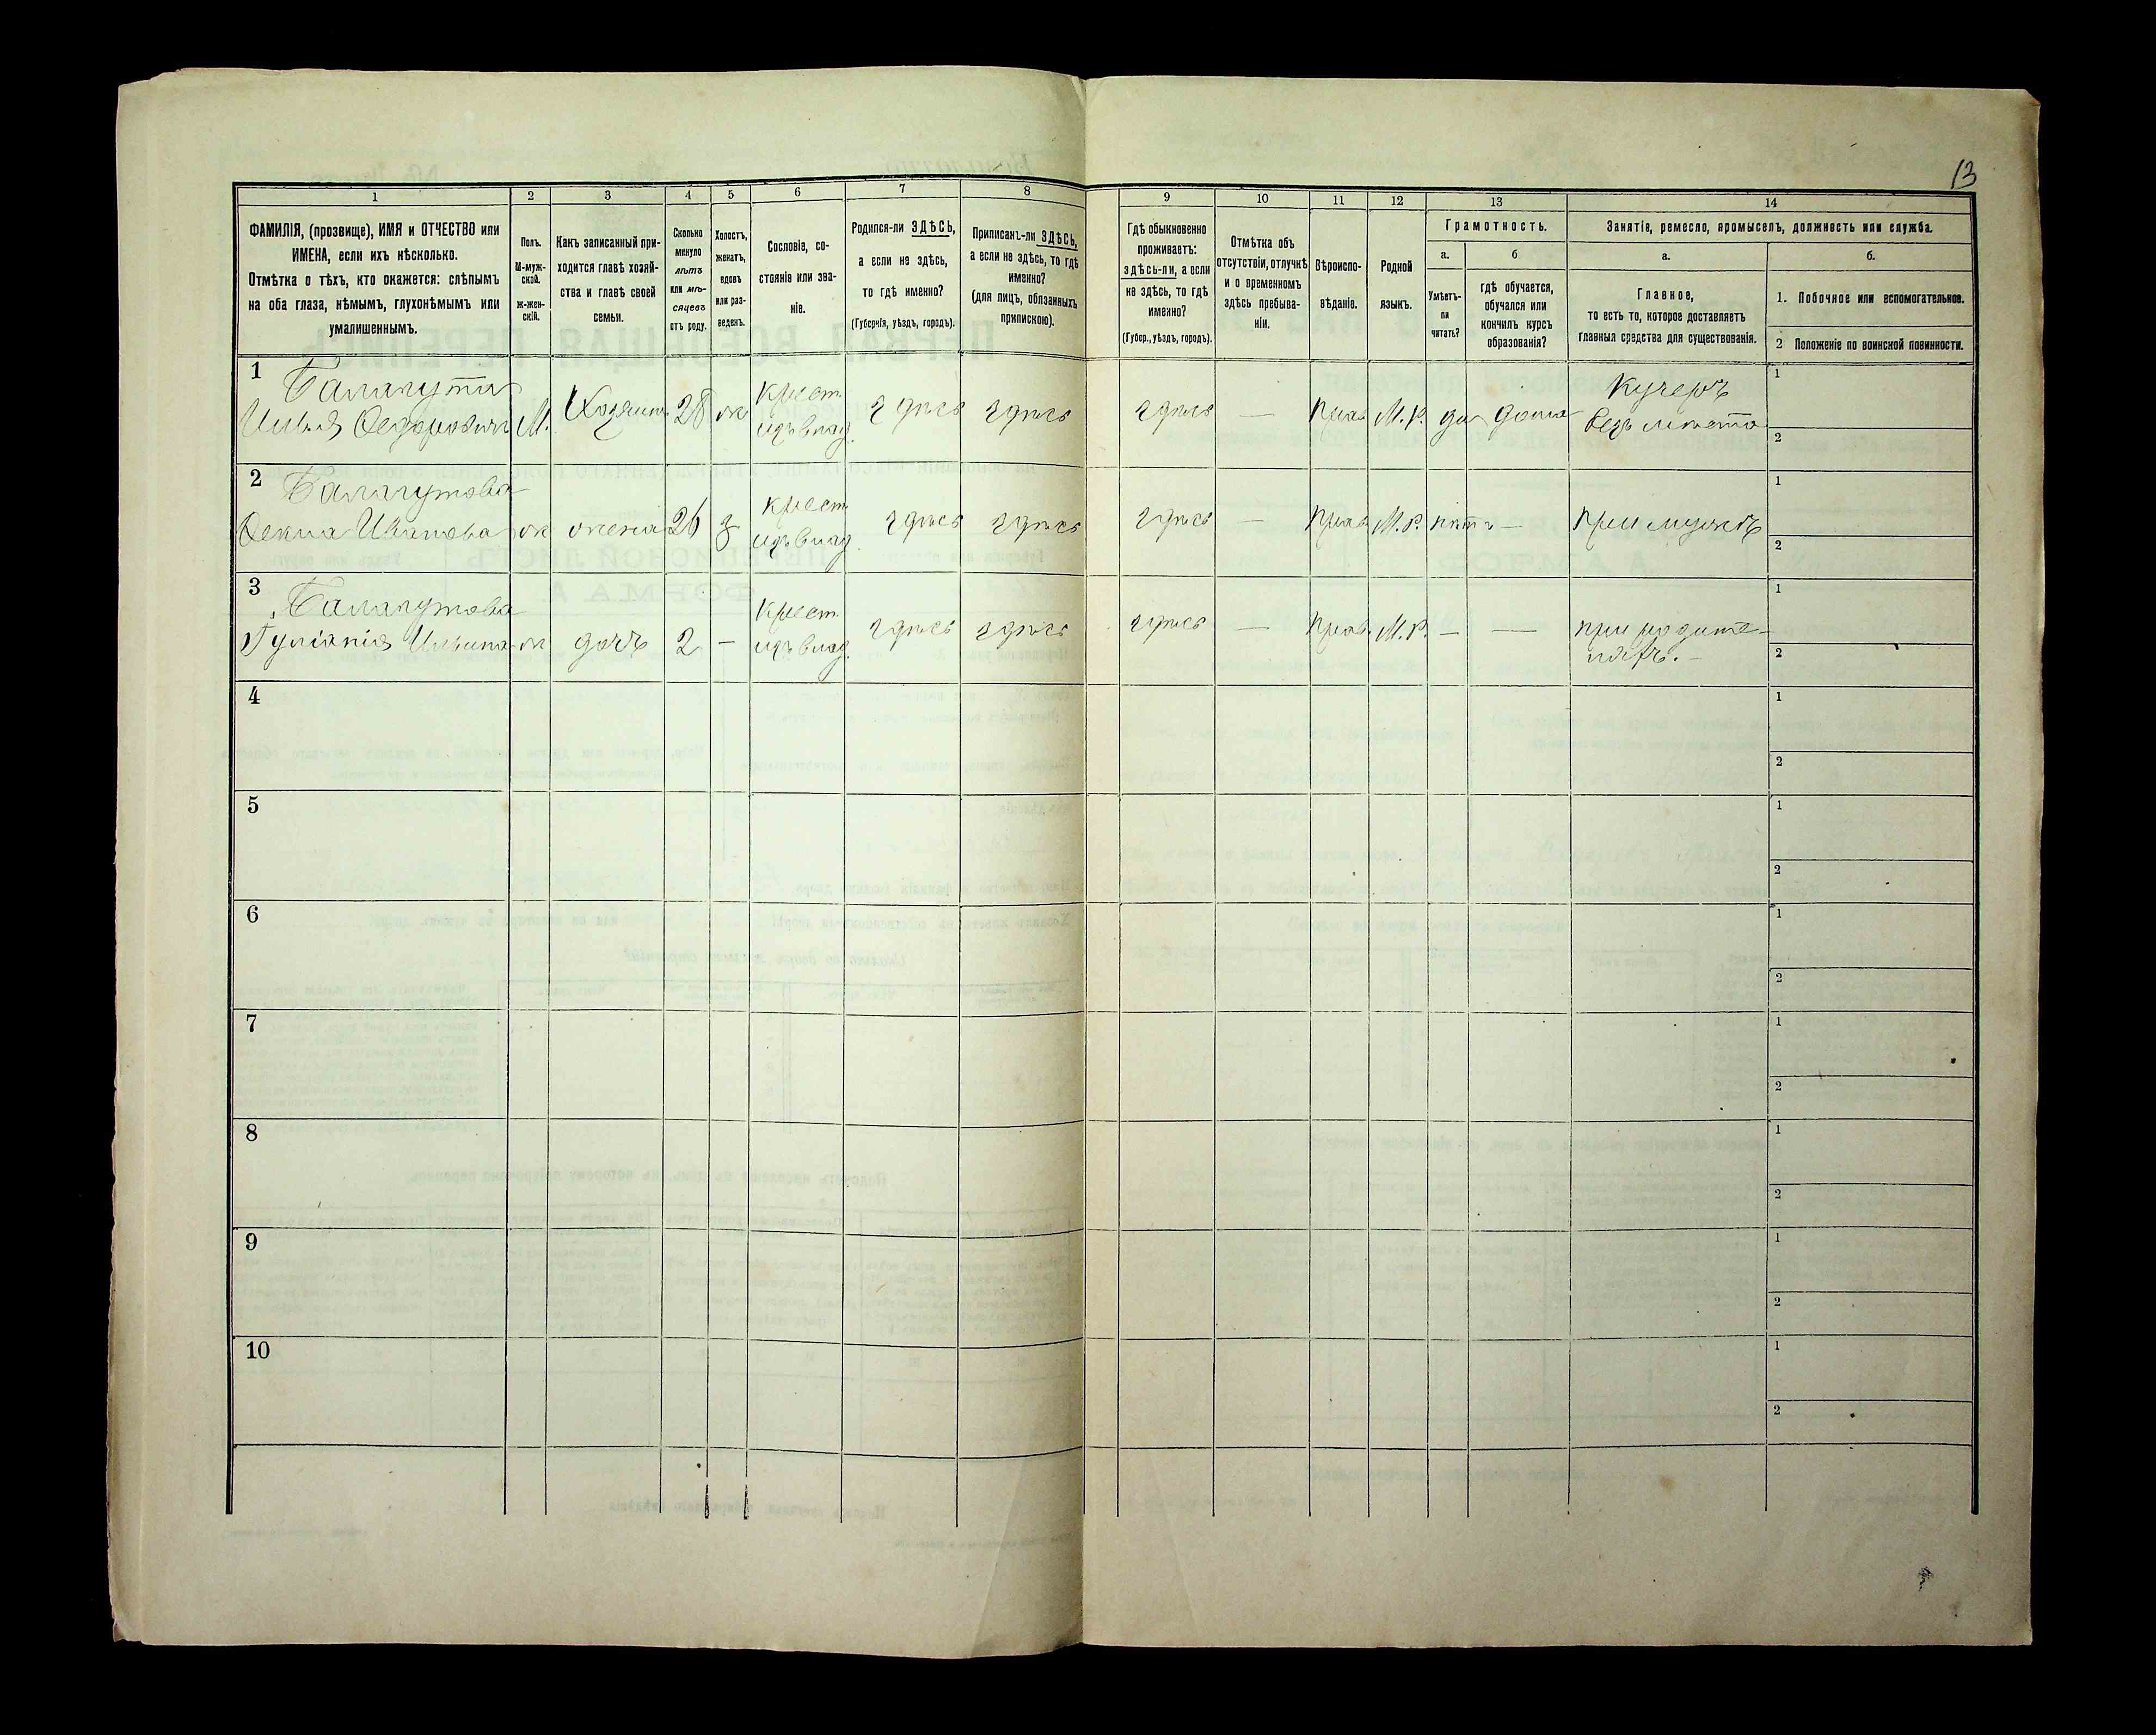 13
1
2
3
4
5
6
7
8
9
10
11
12
13
14
ФАМИЛІЯ, (прозвище), ИМЯ и ОТЧЕСТВО или
ИМЕНА, если ихъ нѣсколько.
Отмѣтка о тѣхъ, кто окажется: слѣпымъ
на оба глаза, нѣмымъ, глухонѣмымъ или
умалишеннымъ.
Полъ.
М-муж-
ской.
ж-жен-
скій.
Какъ записанный при-
ходится главѣ хозяй-
ства и главѣ своей
семьи.
Сколько
минуло
лѣтъ
или мѣ-
сяцевъ
отъ роду.
Холостъ,
женатъ,
вдовъ
или раз-
веденъ.
Сословіе, со-
стояніе или зва-
ніе.
Родился-ли ЗДѢСЬ,
а если не здѣсь,
то гдѣ именно?
(Губернія, уѣздъ, городъ).
Приписанъ-ли ЗДѢСЬ,
а если не здѣсь, то гдѣ
именно?
(для лицъ, обязанныхъ
припискою).
Гдѣ обыкновенно
проживаетъ:
здѣсь-ли, а если
не здѣсь, то гдѣ
именно?
(Губер., уѣздъ, городъ).
Отмѣтка объ
отсутствіи, отлучкѣ
и о временномъ
здѣсь пребыва-
ніи.
Вѣроиспо-
вѣданіе.
Родной
языкъ.
Грамотность.
а.
Умѣетъ-
ли
читать?
б
гдѣ обучается,
обучался или
кончилъ курсъ
образованія?
Занятіе, ремесло, промыселъ, должность или служба.
а.
Главное,
то есть то, которое доставляетъ
главныя средства для существованія.
б.
1. Побочное или вспомогательное.
2 Положеніе по воинской повинности.
1 Балагута
Илья Ѳедоровичъ М. Хозяинъ 28 ж Крест. изъ влад. здѣсь здѣсь здѣсь — Прав. М.Р. да дома Кучеръ
1
2
2 Балагутова
Ѳекла Иванова ж жена 26 з Крест. изъ влад. здѣсь здѣсь здѣсь — Прав. М.Р. нѣтъ — при мужѣ
1
2
3 Балагутова
Гуліанія Ильина ж дочь 2 — Крест. изъ влад. здѣсь здѣсь здѣсь — Прав. М.Р. — — при родите-
ляхъ. —
1
2
4
1
2
5
1
2
6
1
2
7
1
2
8
1
2
9
1
2
10
1
2